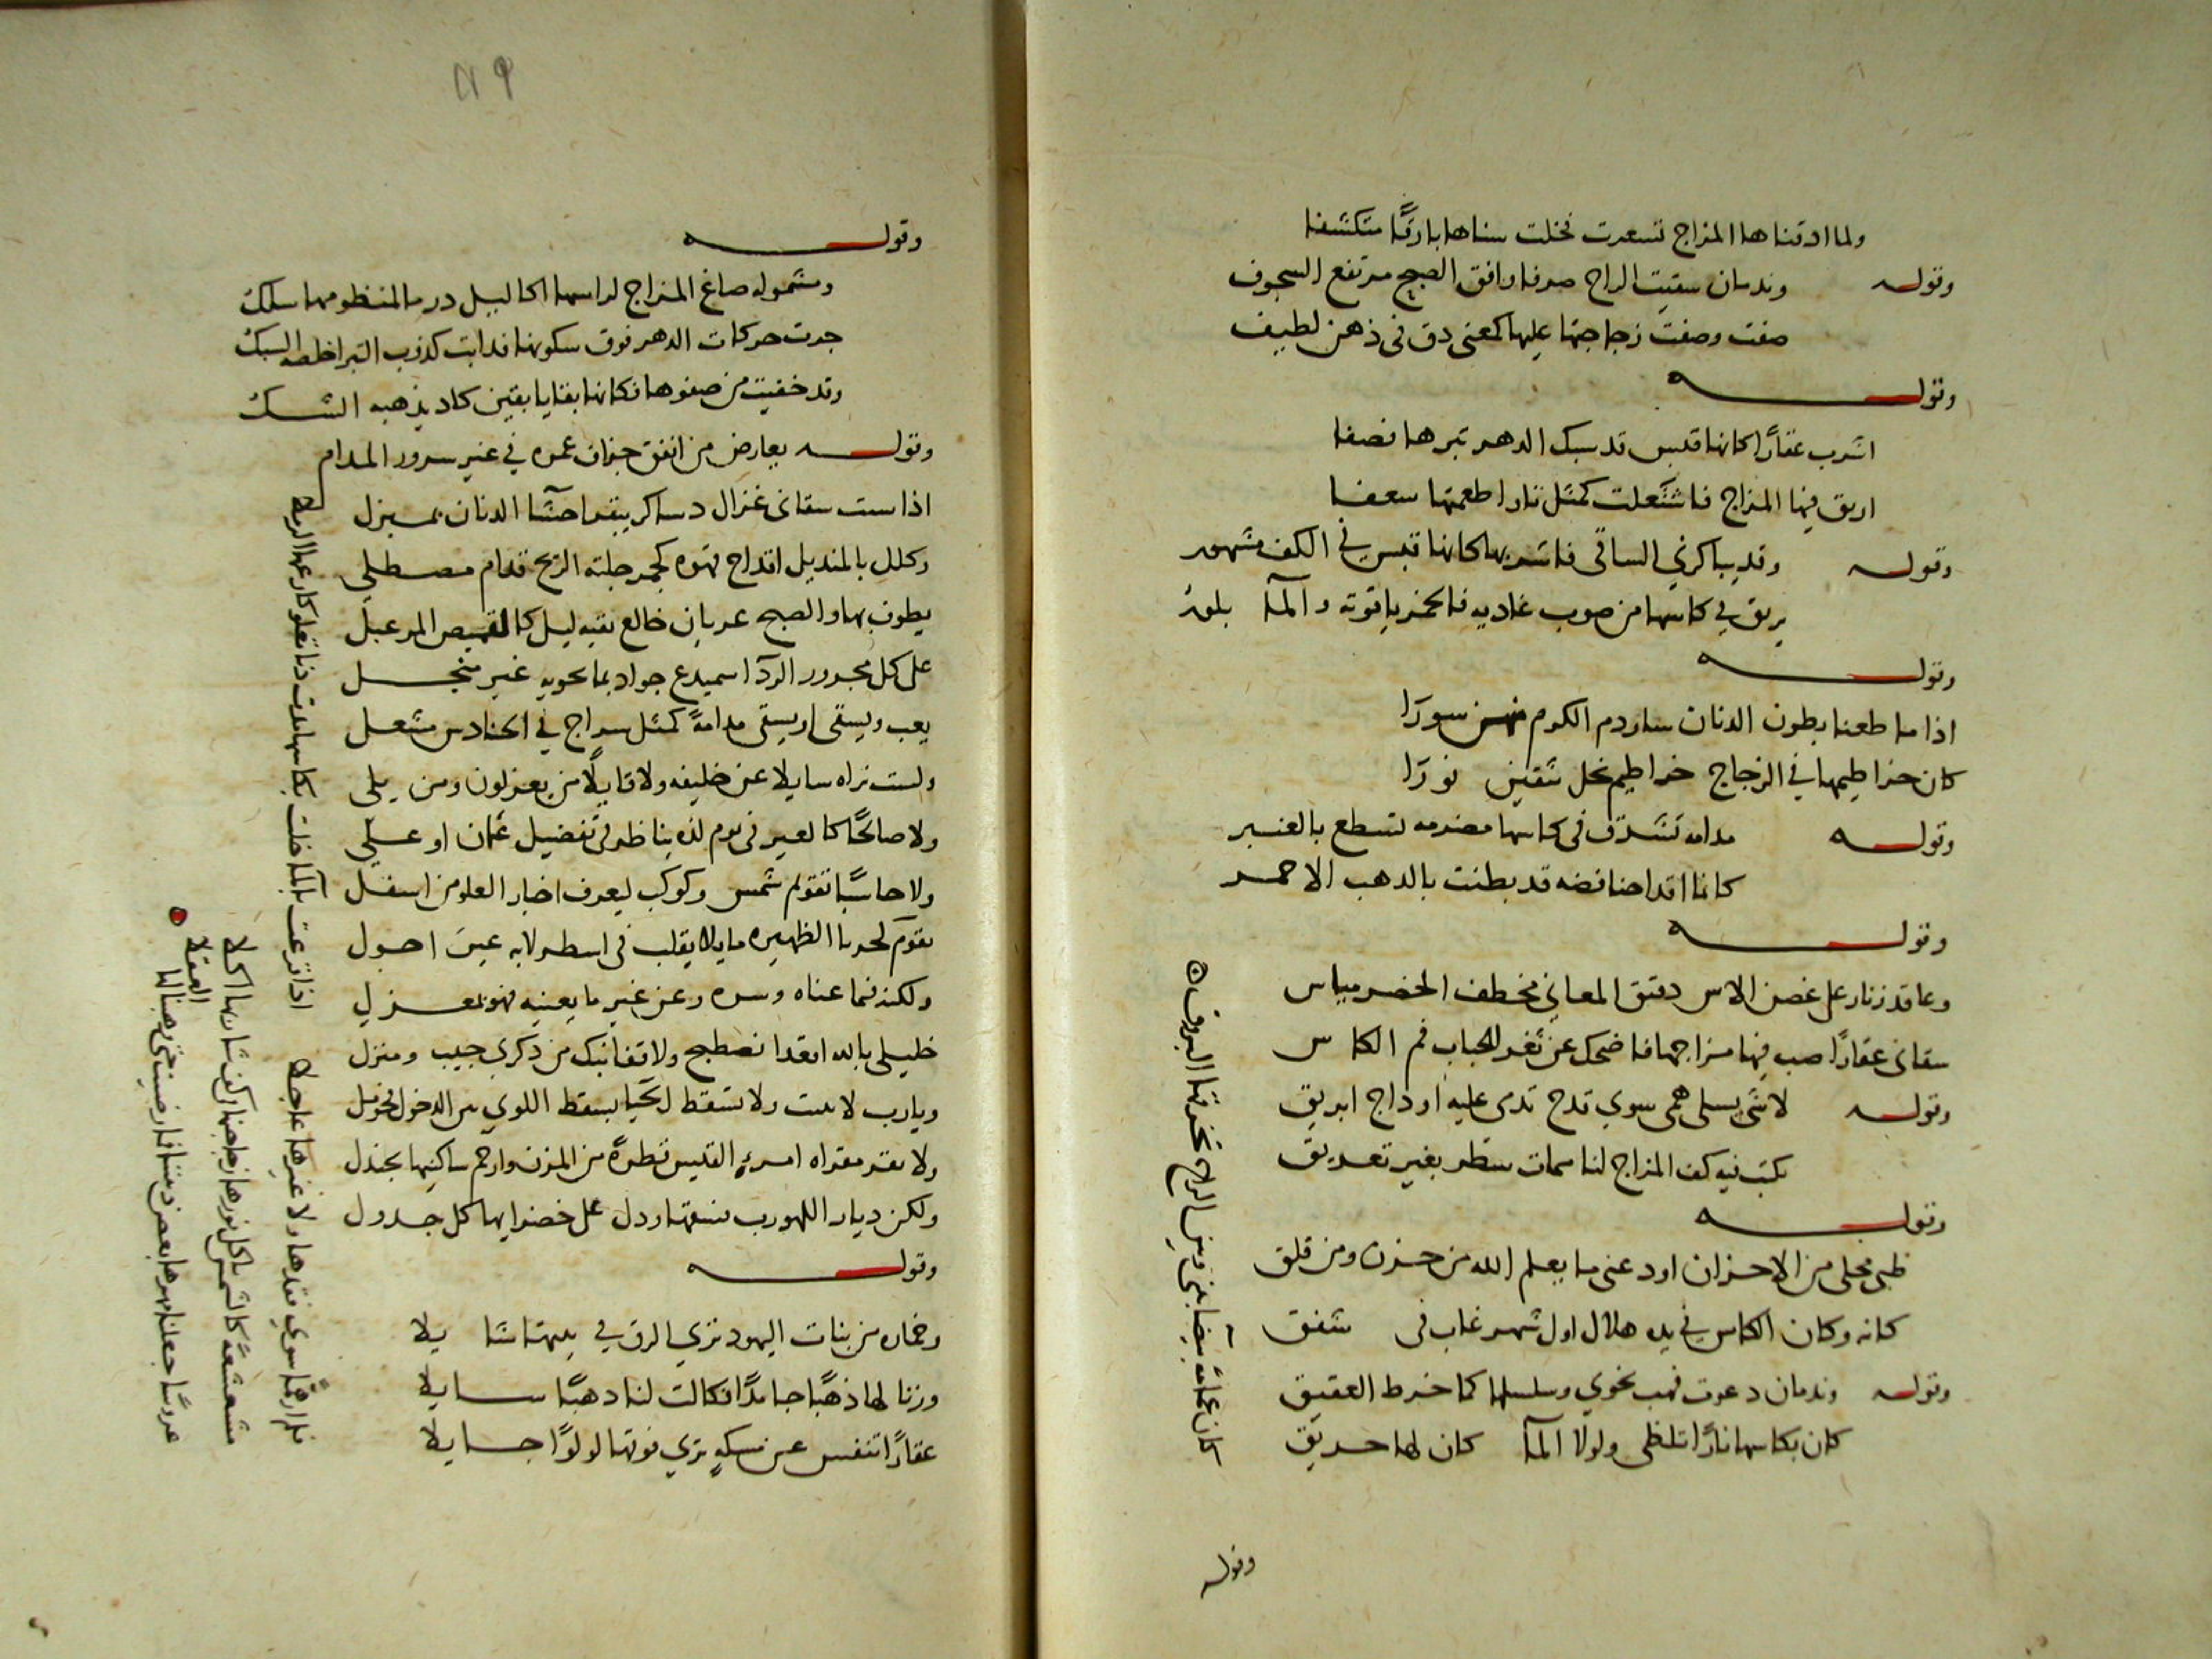 ولما اذقناها المزاج تسعرت فخلت سناها بارقًا متكشفا
وقوله وندمان سقيت الراح صرفا وافق الصبح مرتفع السجوف
صفت وصفت زجاجتها عليها كمعنى دق فى ذهن لطيف
وقوله
اشرب عقارًا كانها قبس قد سبك الدهر تبرها فصفا
اريق فيها المزاج فاشتعلت كمثل نار اطعمتها سعفا
وقوله وقد يباكرني الساقى فاشربها كانها قبس في الكف مشهور
يريق في كاسها من صوب غاديه فالخمر ياقوته والمآ بلور
وقوله
اذا ما طعنا بطون الدنان سار دم الكرم منهن سورًا
كان خراطيمها في الزجاج خراطيم نحل ينقين نورًا
وقوله مدامه تشرق فى كاسها مضرمه تسطع بالعنبر
كانما اقداحنا فضه قد بطنت بالذهب الاحمر
وقوله
وعاقد زنار على غصن الاس دقيق المعاني مخطف الخصر مياس
سقانى عقارًا صب فيها مزاجها فاضحك عن ثغر الحباب فم الكاس
وقوله لا شى يسلى همى سوي قدح تدمى عليه اوداج ابريق
يكتب فيه كف المزاج لنا ميمات سطر بغير تعريق
وقوله
ظبى مخلى من الاحزان اودعنى ما يعلم الله من حزن ومن قلق
كانه وكان الكاس في يده هلال اول شهر غاب فى شفق
وقوله وندمان دعوت فهب نحوي وسلسلها كما خرط العقيق
كان بكاسها نارًا تلظى ولولا المآ كان لها حريق
كان غمامة بيضا بينى وبين الراح تحرقها البروق
وقوله
١١٩
وقوله
ومشموله صاغ المزاج لراسها اكاليل در ما لمنظومها سلك
جرت حركات الدهر فوق سكونها فذابت كذوب التبر اخلصه السبك
وقد خفيت من صفوها فكانها بقايا يقين كاد يذهبه الشك
وقوله يعارض من انفق خزان عمره في غير سرور المدام
اذا ست سقانى غزال دساكر يبقر احشآ الدنان بمبزل
وكلل بالمنديل اقداح قهوه كجمر جلته الريح قدام مصطلي
يطوف بها والصبح عريان خالع بقيه ليل كالقميص المرعبل
على كل مجرور الردآ سميدع جواد بما يحويه غير منجل
يعب ويسقى او يسقى مدامةً كمثل سراج في الحنادس مشعل
ولست تراه سايلا عن خليفه ولا قايلًا من يعزلون ومن يلى
ولا صالحًا كالعير فى يوم لذه يناظر فى تفضيل عثمان او علي
ولا حاسبًا تقويم شمس وكوكب ليعرف اخبار العلو من اسفل
يقوم كحربا الظهيره مايلا يقلب فى اسطرلابه عين احول
ولكنه فيما عناه وسره وعن غير ما يعنيه فهو بمعزل
خليلى بالله اقعدا نصطبح ولا قفا نبك من ذكرى حبيب ومنزل
ويارب لا تنبت ولا تسقط الحيا بسقط اللوي بين الدخول فحومل
ولا تقر مقراه امرءِ القيس قطرةً من المزن وارجم ساكنيها بجندل
ولكن ديار اللهو رب فسقها ودل على خضرايها كل جدول
وقوله
وخماره من بنات اليهود تري الزق في بيتها شايلا
وزنا لها ذهبًا جامدًا فكالت لنا ذهبًا سايلا
عقارًا تنفس عن مسكةٍ تري فوقها لولوًا جايلا
اذا قرعت بالمآ خلت بكاسها
فلم ار همًا سوي فقدها ولا غيرها عاجلا
مشعشعة كالشمس
العقلا
عروسًا جعلنا مهرها بعض ديننا